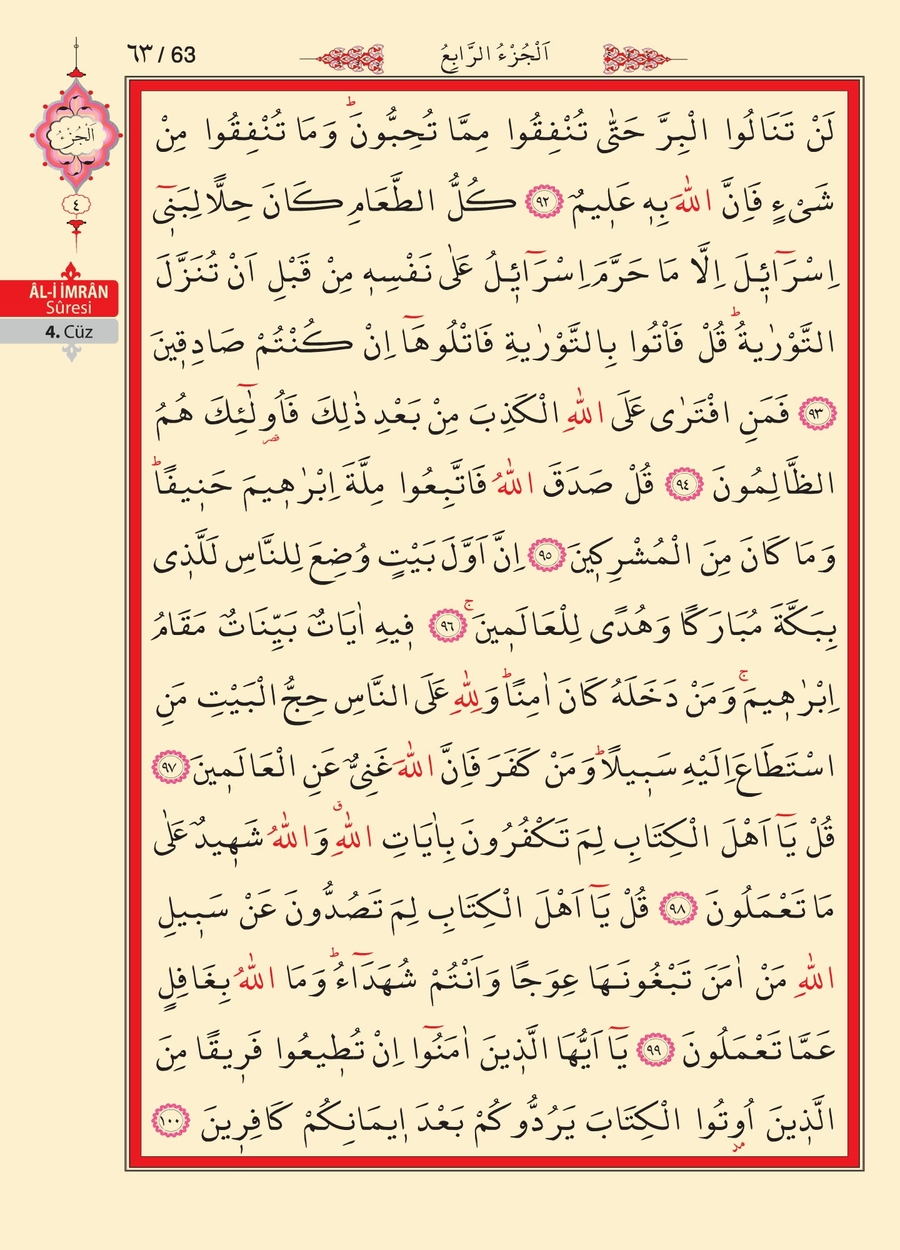 ٦٣ / 63
اَلْجُزْءُ الرَّابِعُ
اَلْجُزْءُ
٤
ÂL-İ İMRÂN
Sûresi
4. Cüz
لَنْ تَنَالُوا الْبِرَّ حَتّٰى تُنْفِقُوا مِمَّا تُحِبُّونَۜ وَمَا تُنْفِقُوا مِنْ
شَىْءٍ فَاِنَّ اللّٰهَ بِه۪ عَل۪يمٌ ﴿٩٢﴾ كُلُّ الطَّعَامِ كَانَ حِلًّا لِبَن۪ٓى
اِسْرَٓائ۪لَ اِلَّا مَا حَرَّمَ اِسْرَٓائ۪لُ عَلٰى نَفْسِه۪ مِنْ قَبْلِ اَنْ تُنَزَّلَ
التَّوْرٰيةُۜ قُلْ فَاْتُوا بِالتَّوْرٰيةِ فَاتْلُوهَٓا اِنْ كُنْتُمْ صَادِق۪ينَ
﴿٩٣﴾ فَمَنِ افْتَرٰى عَلَى اللّٰهِ الْكَذِبَ مِنْ بَعْدِ ذٰلِكَ فَاُو۬لٰٓئِكَ هُمُ
الظَّالِمُونَ ﴿٩٤﴾ قُلْ صَدَقَ اللّٰهُ فَاتَّبِعُوا مِلَّةَ اِبْرٰه۪يمَ حَن۪يفًاۜ
وَمَا كَانَ مِنَ الْمُشْرِك۪ينَ ﴿٩٥﴾ اِنَّ اَوَّلَ بَيْتٍ وُضِعَ لِلنَّاسِ لَلَّذ۪ى
بِبَكَّةَ مُبَارَكًا وَهُدًى لِلْعَالَم۪ينَۚ ﴿٩٦﴾ ف۪يهِ اٰيَاتٌ بَيِّنَاتٌ مَقَامُ
اِبْرٰه۪يمَۚ وَمَنْ دَخَلَهُ كَانَ اٰمِنًاۜ وَلِلّٰهِ عَلَى النَّاسِ حِجُّ الْبَيْتِ مَنِ
اسْتَطَاعَ اِلَيْهِ سَب۪يلًاۜ وَمَنْ كَفَرَ فَاِنَّ اللّٰهَ غَنِىٌّ عَنِ الْعَالَم۪ينَ ﴿٩٧﴾
قُلْ يَٓا اَهْلَ الْكِتَابِ لِمَ تَكْفُرُونَ بِاٰيَاتِ اللّٰهِۗ وَاللّٰهُ شَه۪يدٌ عَلٰى
مَا تَعْمَلُونَ ﴿٩٨﴾ قُلْ يَٓا اَهْلَ الْكِتَابِ لِمَ تَصُدُّونَ عَنْ سَب۪يلِ
اللّٰهِ مَنْ اٰمَنَ تَبْغُونَهَا عِوَجًا وَاَنْتُمْ شُهَدَٓاءُۜ وَمَا اللّٰهُ بِغَافِلٍ
عَمَّا تَعْمَلُونَ ﴿٩٩﴾ يَٓا اَيُّهَا الَّذ۪ينَ اٰمَنُٓوا اِنْ تُط۪يعُوا فَر۪يقًا مِنَ
الَّذ۪ينَ اُو۫تُوا الْكِتَابَ يَرُدُّوكُمْ بَعْدَ ا۪يمَانِكُمْ كَافِر۪ينَ ﴿١٠٠﴾